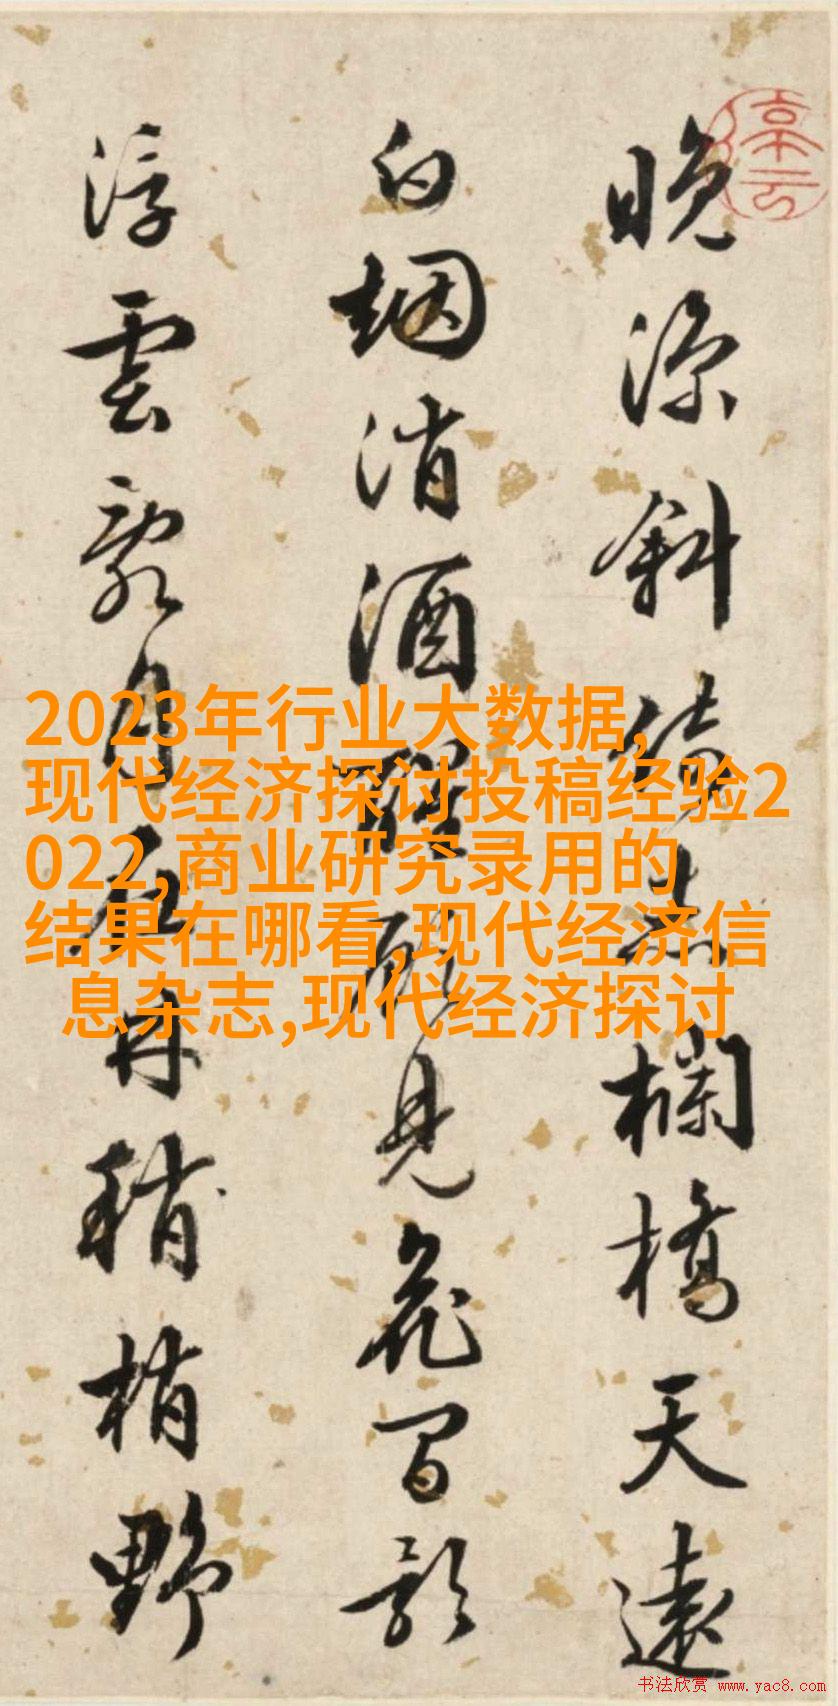 晚涼斜倚赤欄橋天遠
白烟消酒醒顧見花間影
浮雲月在稍梢野
2023年行业大数据,
现代经济探讨投稿经验2
022,商业研究录用的
结果在哪看,现代经济信
息杂志,现代经济探讨
书法欣赏 www.yac8.com